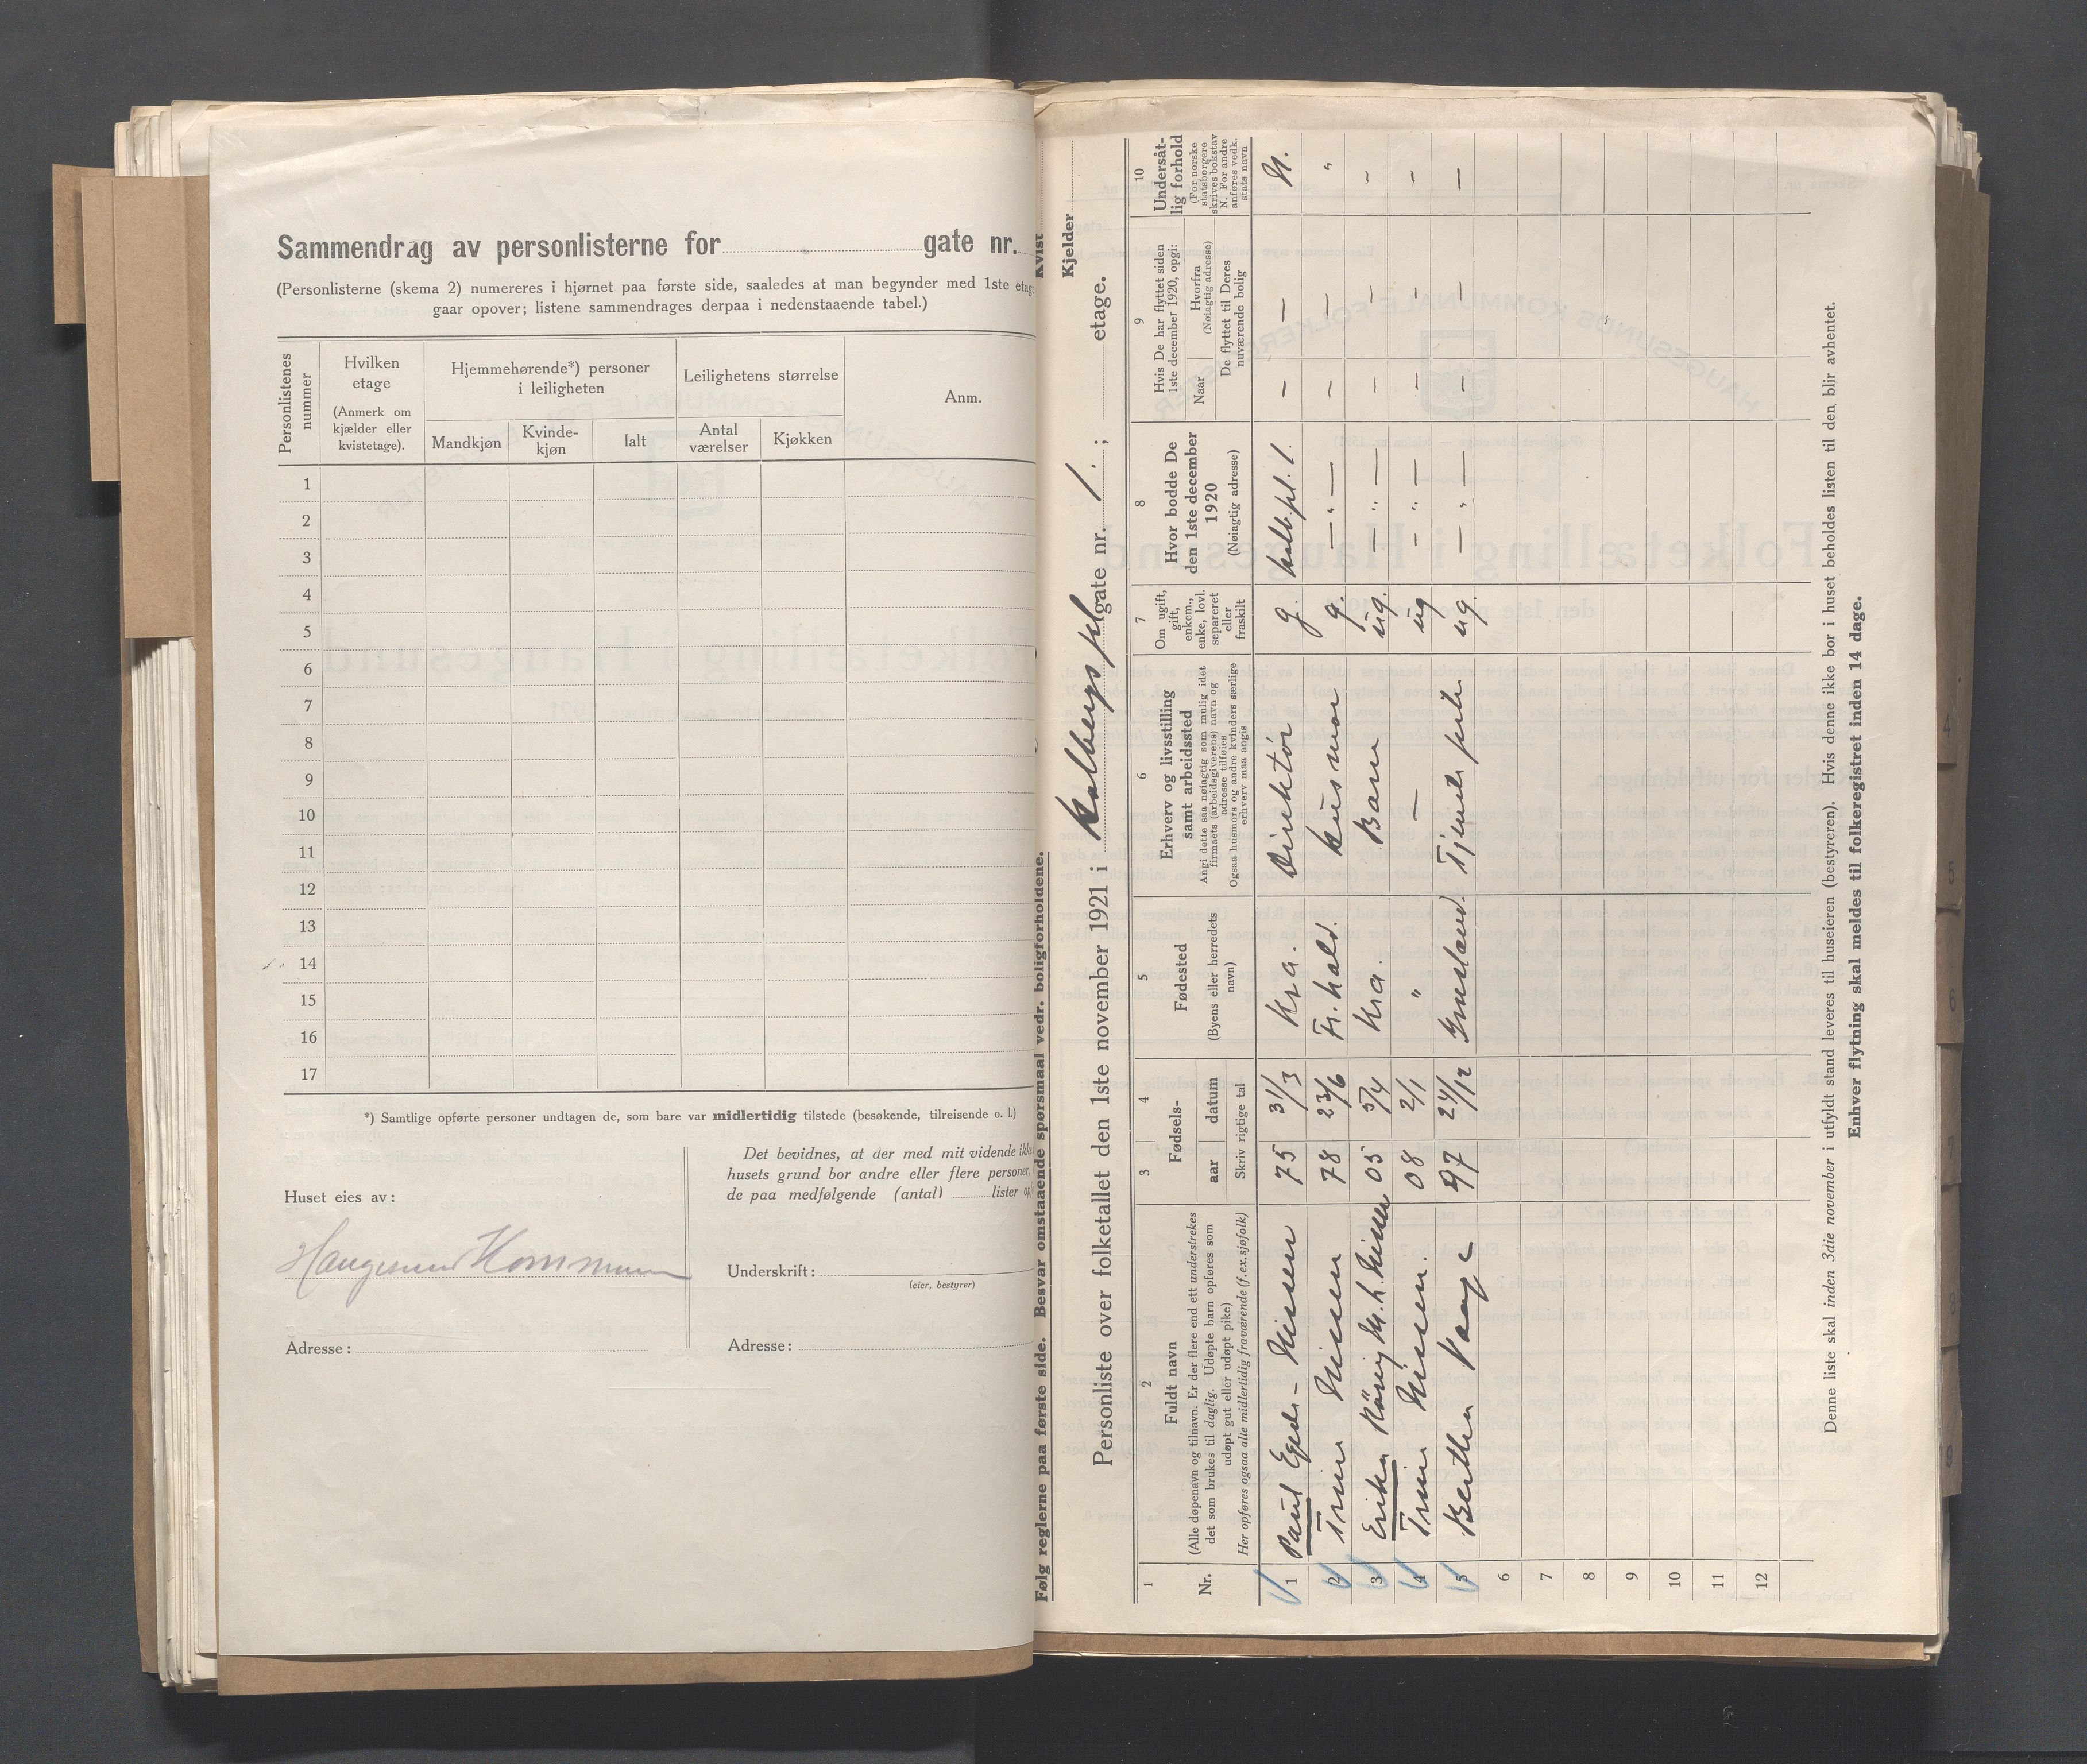 Sammendrag av personlisterne for gate nr.
(Personlisterne (skema 2) numereres i hjørnet paa første side, saaledes at man begynder med 1ste etage
gaar opover; listene sammendrages derpaa i nedenstaaende tabel.)
Personlistenes nummer
Hvilken etage
(Anmerk om kjælder eller kvistetage).
Hjemmehørende*) personer i leiligheten
Mandkjøn
Kvinde-
kjøn
Ialt
Leilighetens størrelse
Antal værelser
Kjøkken
Anm.
1
2
3
4
5
6
7
8
9
10
11
12
13
14
15
16
17
*) Samtlige opførte personer undtagen de, som bare var midlertidig tilstede (besøkende, tilreisende o. l.)
Huset eies av:
Haugesund Kommune
Adresse:
Det bevidnes, at der med mit vidende ikke
husets grund bor andre eller flere personer,
de paa medfølgende (antal) lister
Underskrift:
(eier, bestyrer)
Adresse:
Følg reglerne paa første side. Besvar omstaaende spørsmaal vedr. boligforholdene.
Kvist
Kjelder
Personliste over folketallet den 1ste november 1921 i Kalbergs pl gate nr. 1. ; etage.
1 2 3 4 5 6 7 8 9 10
Nr.
Fuldt navn
(Alle døpenavn og tilnavn. Er der flere end ett understrekes
det som brukes til daglig. Udøpte barn opføres som
udøpt gut eller udøpt pike)
Her opføres ogsaa alle midlertidig fraværende (f.ex. sjøfolk)
Fødsels-
aar datum
Skriv rigtige tal
Fødested
(Byens eller herredets navn)
Erhverv og livsstilling
samt arbeidssted
Angi dette saa nøiagtig som mulig idet
firmaets (arbeidsgiverens) navn og
adresse tilføies
Ogsaa husmors og andre kvinders særlige
erhverv maa angis
Om ugift,
gift,
enkem.,
enke, lovl.
separeret
eller
fraskilt
Hvor bodde De
den 1ste december
1920
(Nøiagtig adresse)
Hvis De har flyttet siden
1ste december 1920, opgi:
Naar
Hvorfra
(Nøiagtig adresse)
De flyttet til Deres
nuværende bolig
Undersåt-
lig forhold
(For norske
statsborgere
skrives bokstav
N. For andre
anføres vedk.
stats navn
1 Paul Egede-Nissen 75 31/3 Kra. Direktør g. Kalb.pl. 1. — — N.
2 Trine Nissen 78 23/6 Fr.hald. husmor g. — „ — — — „
3 Erika Nissen 05 5/4 Kra. Barn ug. — „ — — — –
4 Trine Nissen. 08 2/1 „ — ug — „ — — — –
5 Berthe Vaage 97 24/12 Tjenestepike ug. — „ — — — —
6
7
8
9
10
11
12
Denne liste skal inden 3die november i utfyldt stand leveres til huseieren (bestyreren). Hvis denne ikke bor i huset beholdes listen til den blir avhentet.
Enhver flytning skal meldes til folkeregistret inden 14 dage.